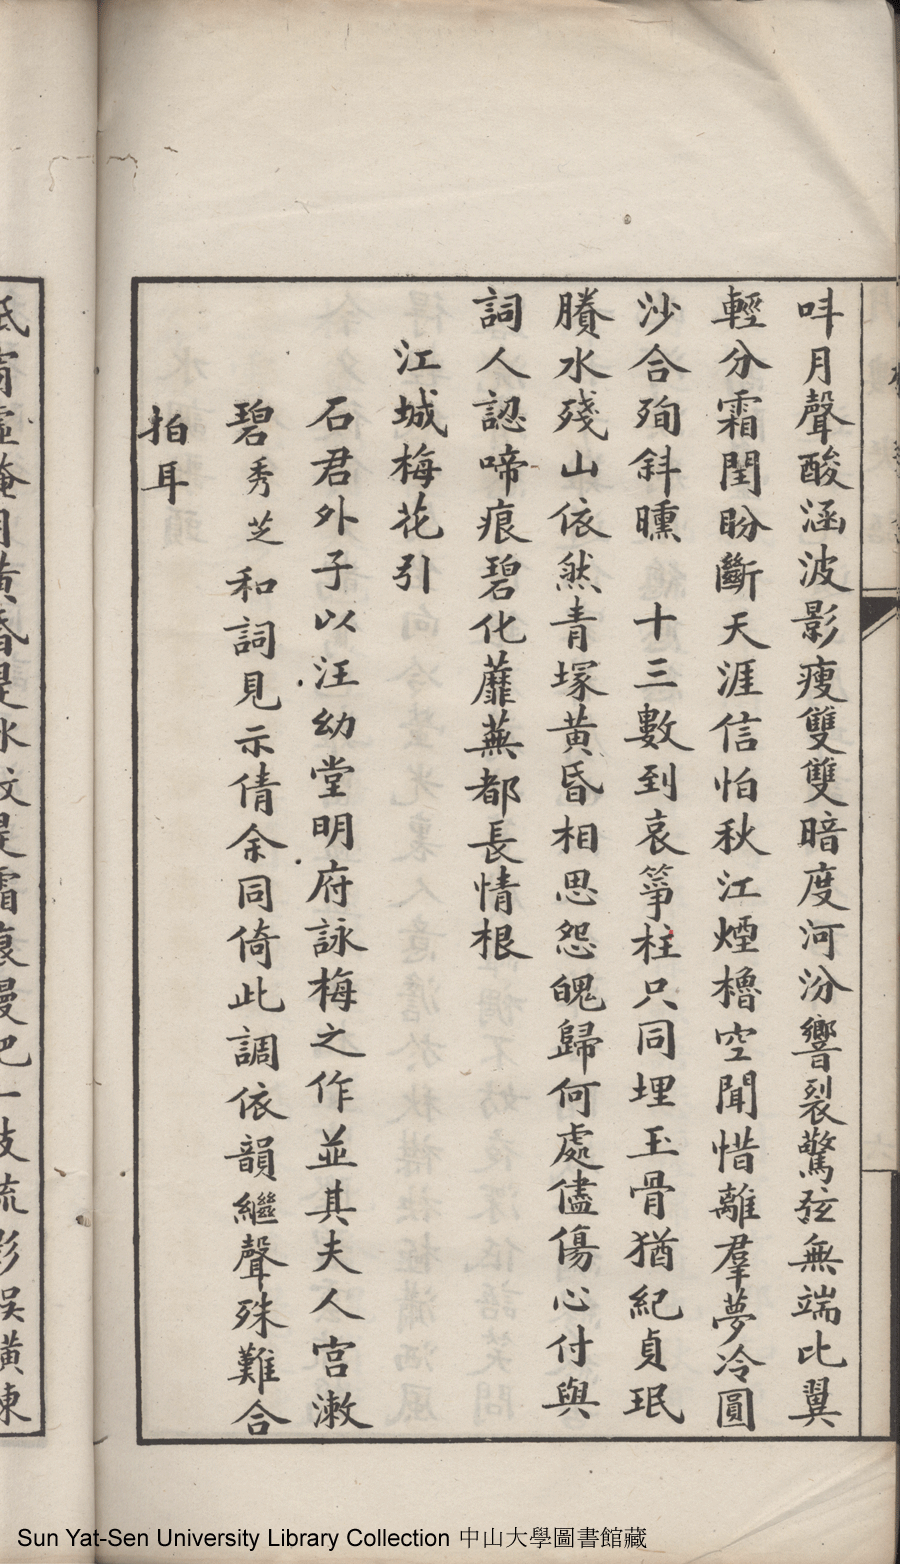 呌月聲酸涵波影瘦雙雙暗度河汾響裂驚弦無端比翼
輕分霜閏盼斷天涯信怕秋江煙櫓空聞惜離羣夢冷圓
沙合殉斜曛　十三數到哀箏柱只同埋玉骨猶紀貞珉
賸水殘山依然青塚黃昏相思怨魄歸何處儘傷心付與
詞人認啼痕碧化蘼蕪都長情根
江城梅花引
石君外子以汪幼堂明府詠梅之作並其夫人宮漱
碧秀芝和詞見示倩余同倚此調依韻繼聲殊難合
拍耳
月黃昏是水
是霜痕漫把一枝疏影誤橫陳
Sun Yat-Sen University Library Collection 中山大學圖書館藏